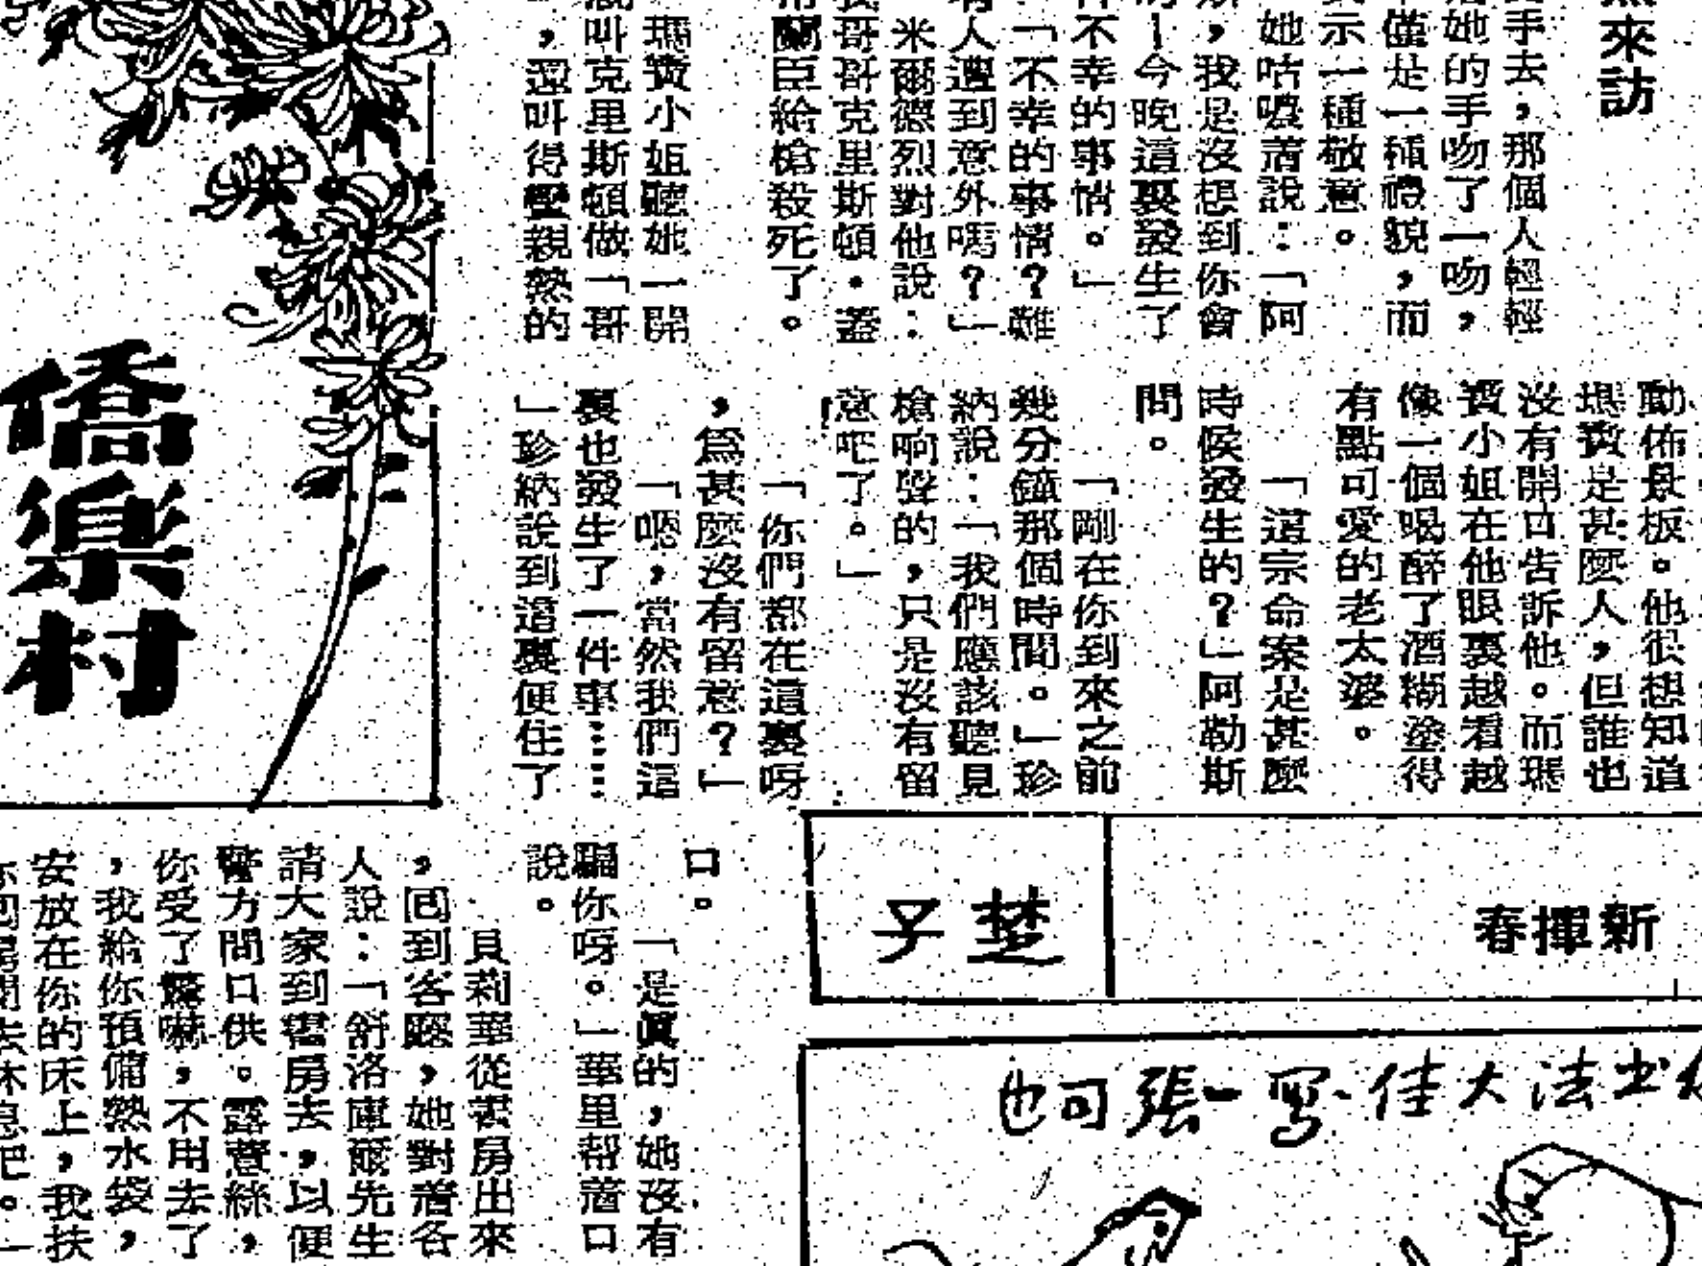 來訪
手去，那個人輕輕
她的手吻了一吻，
僅是一種禮貌，而
示一種敬意。
她咕噥着說：「阿
，我是沒想到你會
—今晚這裏發生了
不幸的事情。」
「不幸的事情？難
人遭到意外嗎？」
米爾德烈對他說：
哥哥克里斯頓·蓋
蘭臣給槍殺死了。
瑪賽小姐聽她一開
叫克里斯頓做「哥
，還叫得蠻親熱的
動佈景板。他很想知道
瑪賽是甚麼人，但誰也
沒有開口告訴他。而瑪
賽小姐在他眼裏越看越
像一個喝醉了酒糊塗得
有點可愛的老太婆。
「這宗命案是甚麼
時候發生的？」阿勒斯
問。
「剛在你到來之前
幾分鐘那個時間。」珍
納說：「我們應該聽見
槍响聲的，只是沒有留
意吧了。」
「你們都在這裏呀
，爲甚麼沒有留意？」
「嗯，當然我們這
裏也發生了一件事……
」珍納說到這裏便住了
口。
「是眞的，她沒有
騙你呀。」華里幫着口
說。
貝莉華從書房出來
，回到客廳，她對着各
人說：「舒洛庫爾先生
請大家到書房去，以便
警方問口供。露薏絲，
你受了驚嚇，不用去了
，我給你預備熱水袋，
安放在你的床上，我扶
僑樂村
楚子
新揮春
書法大佳寫一張可也